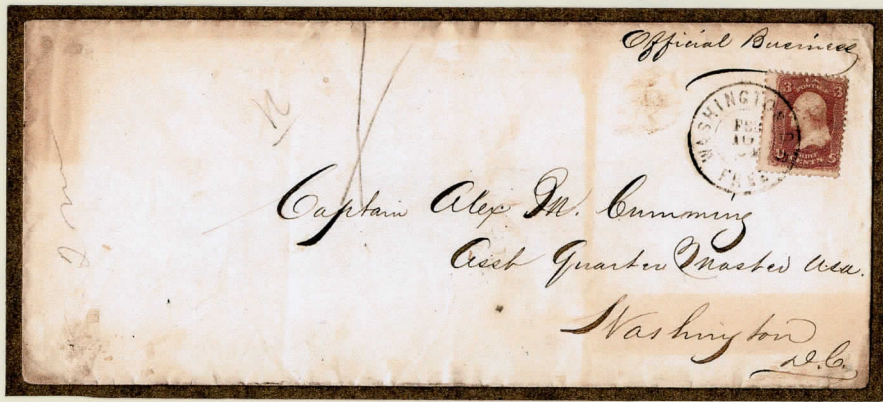 Official Business
3 3
WASHINGTON
FREE
Captain Alex M. Cumming
Asst Quarter Master USA.
Washington
D.C.